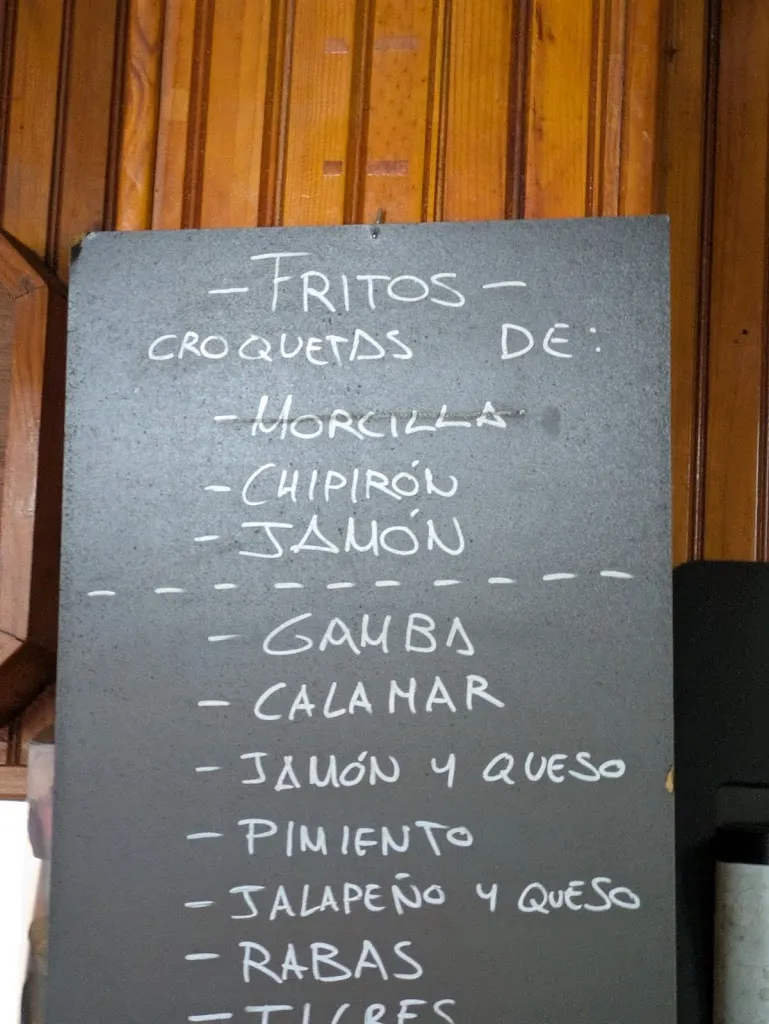 - FRITOS -
CROQUETAS DE:
- MORCILLA
- CHIPIRÓN
- JAMÓN
- - - - - - - - -
- GAMBA
- CALAMAR
- JAMÓN Y QUESO
- PIMIENTO
- JALAPEÑO Y QUESO
- RABAS
- TIGRES